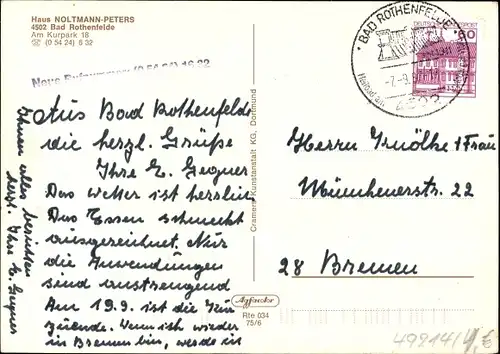 Haus NOLTMANN-PETERS
4502 Bad Rothenfelde
Am Kurpark 18
☎ (0 54 24) 6 32
Neue Rufnummer (0 54 24) 16 32
Aus Bad Rothenfelde
die herzl. Grüße
Ihre E. Gegner
Das Wetter ist herrlich
Das Essen schmeckt
ausgezeichnet. Nur
die Anwendungen
sind anstrengend
Am 19.9. ist die Kur
zuende. Wenn ich wieder
in Bremen bin, werde ich
Ihnen alles berichten
herzl. Ihre E. Gegner
Cramers Kunstanstalt KG, Dortmund
BAD ROTHENFELDE
-7.-9.
4502
60
Herrn Grnölke + Frau
Münchenerstr. 22
28 Bremen
Agfacolor
Rte 034
75/6
49214